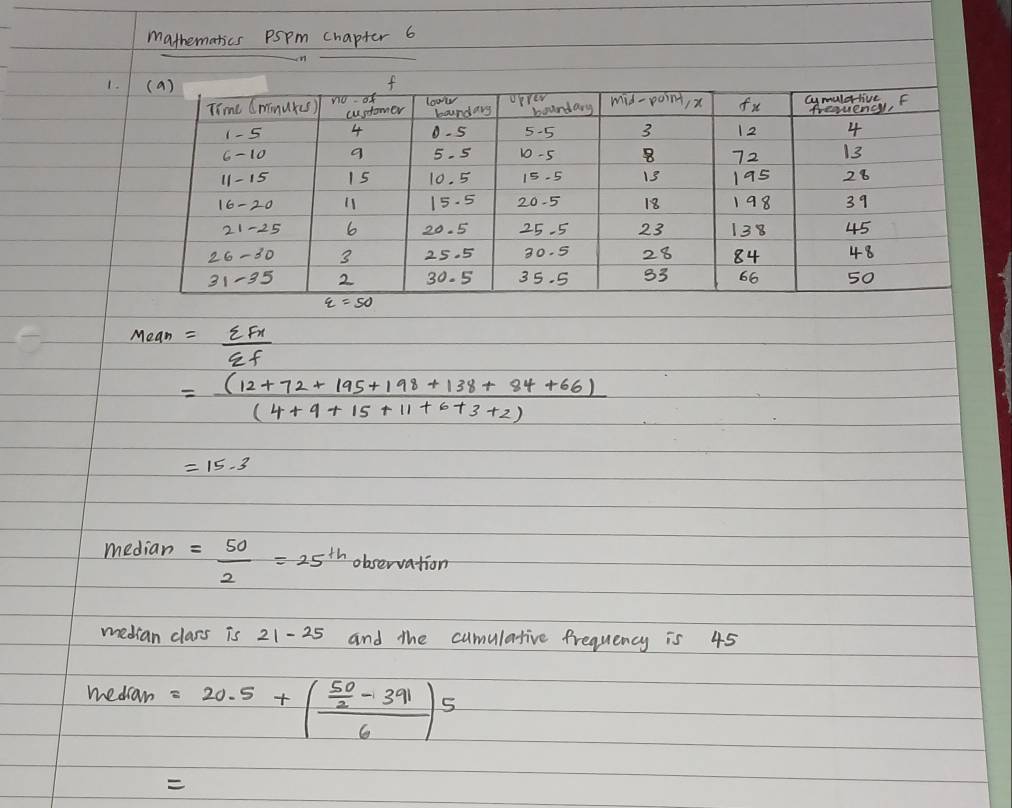 Mathematics PSPM Chapter 6
1. (a)
f
Time (minutes) no. of customer lower boundary upper boundary mid-point, x fx cumulative frequency, F
1-5 4 0.5 5.5 3 12 4
6-10 9 5.5 10.5 8 72 13
11-15 15 10.5 15.5 13 195 28
16-20 11 15.5 20.5 18 198 39
21-25 6 20.5 25.5 23 138 45
26-30 3 25.5 30.5 28 84 48
31-35 2 30.5 35.5 33 66 50
Σ = 50
Mean = Σfx / Σf
= (12+72+195+198+138+84+66) / (4+9+15+11+6+3+2)
= 15.3
median = 50/2 = 25th observation
median class is 21-25 and the cumulative frequency is 45
median = 20.5 + ((50/2 - 39) / 6) 5
=